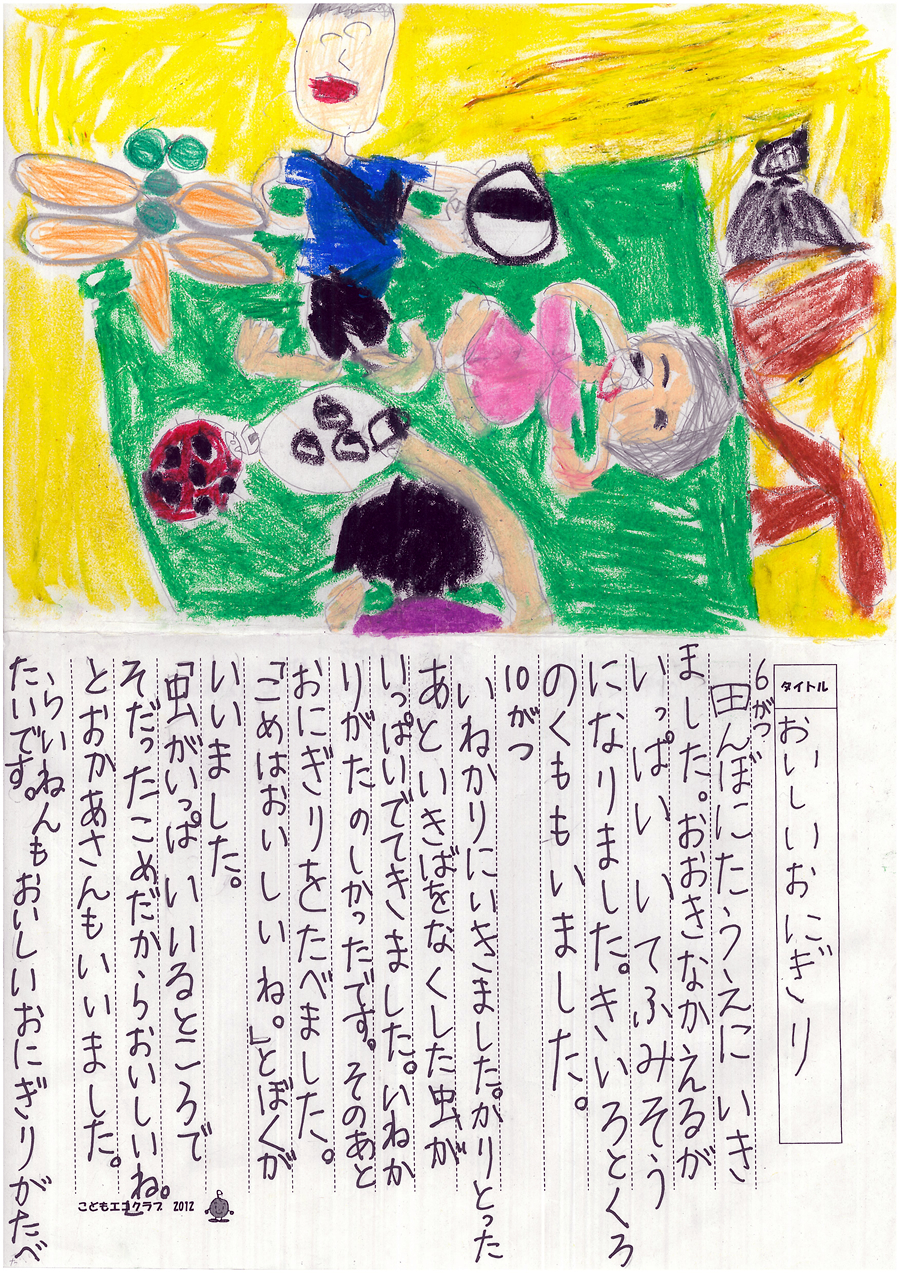 タイトル
おいしいおにぎり
6がつ
田んぼにたうえにいき
ました。おおきなかえるが
いっぱいいてふみそう
になりました。きいろとくろ
のくももいました。
10がつ
いねかりにいきました。かりとった
あといきばをなくした虫が
いっぱいでてきました。いねか
りがたのしかったです。そのあと
おにぎりをたべました。
「こめはおいしいね。」とぼくが
いいました。
「虫がいっぱいいるところで
そだったこめだからおいしいね。」
とおかあさんもいいました。
らいねんもおいしいおにぎりがたべ
たいです。
こどもエコクラブ 2012